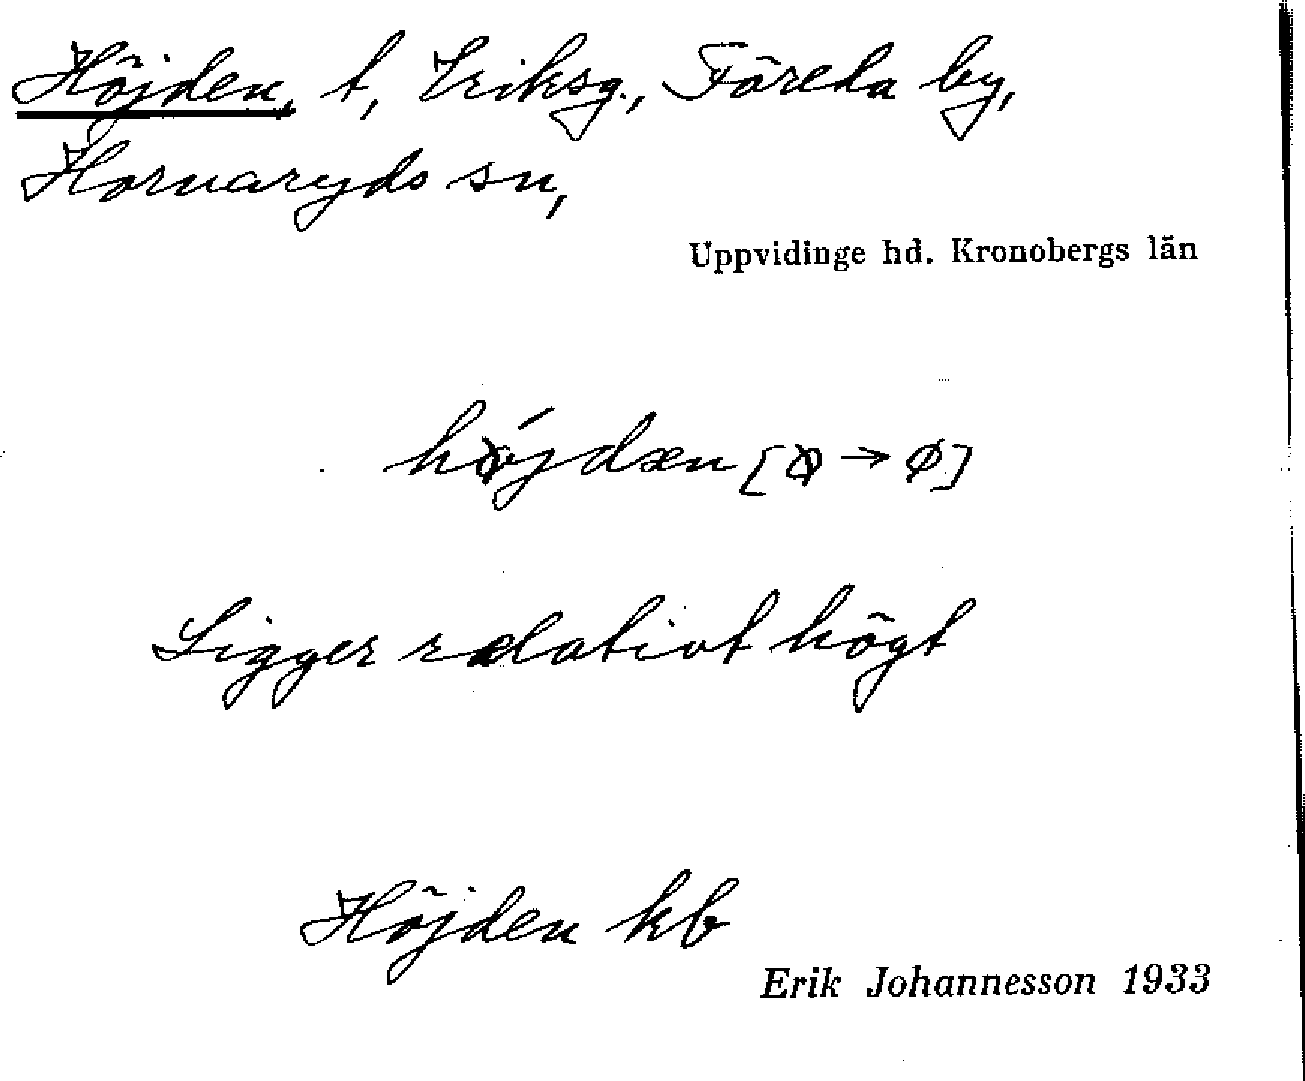 Höjden, t, Eriksg., Föreda by,
Hornaryds sn,
Uppvidinge hd. Kronobergs län
Ligger relativt högt
Höjden kb
Erik Johannesson 1933